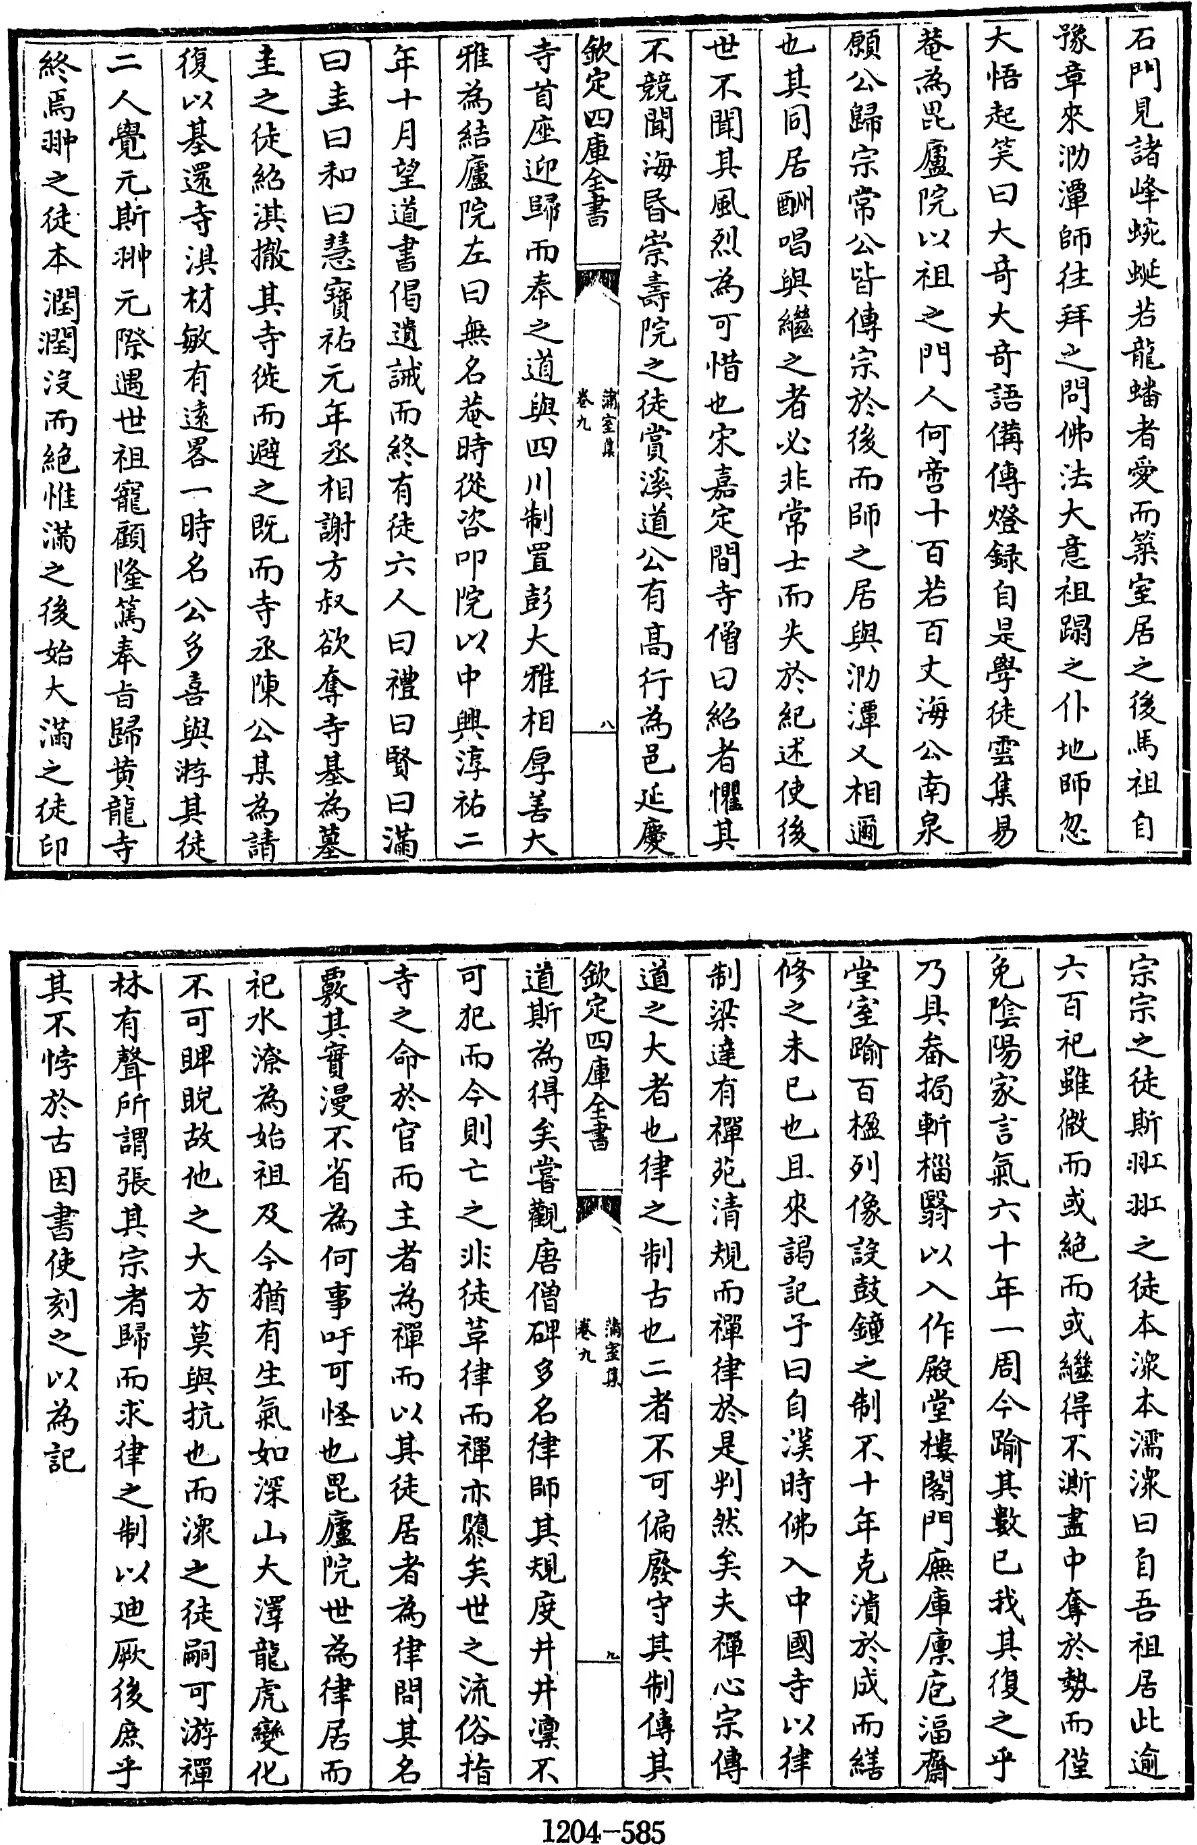 石門見諸峰蜿蜒若龍蟠者愛而築室居之後馬祖自
豫章來泐潭師往拜之問佛法大意祖蹋之仆地師忽
大悟起笑曰大奇大奇語備傳燈録自是學徒雲集易
菴為毘盧院以祖之門人何啻十百若百丈海公南泉
願公歸宗常公皆傳宗於後而師之居與泐潭又相邇
也其同居酬唱與繼之者必非常士而失於紀述使後
世不聞其風烈為可惜也宋嘉定間寺僧曰紹者懼其
不競聞海昏崇壽院之徒賞溪道公有高行為邑延慶
欽定四庫全書
蒲室集
卷九
八
寺首座迎歸而奉之道與四川制置彭大雅相厚善大
雅為結廬院左曰無名菴時從咨叩院以中興淳祐二
年十月望道書偈遺誡而終有徒六人曰禮曰賢曰滿
曰圭曰和曰慧寶祐元年丞相謝方叔欲奪寺基為墓
圭之徒紹淇撤其寺徙而避之既而寺丞陳公某為請
復以基還寺淇材敏有遠畧一時名公多喜與游其徒
二人覺元斯翀元際遇世祖寵顧隆篤奉旨歸黄龍寺
終焉翀之徒本潤潤沒而絶惟滿之後始大滿之徒印
宗宗之徒斯𦐂𦐂之徒本濴本濡濴曰自吾祖居此逾
六百祀雖微而或絶而或繼得不澌盡中奪於勢而僅
免陰陽家言氣六十年一周今踰其數已我其復之乎
乃具畚挶斬椔翳以入作殿堂樓閣門廡庫廪庖湢齋
堂室踰百楹列像設鼓鐘之制不十年克潰於成而繕
修之未已也且來謁記予曰自漢時佛入中國寺以律
制梁達有禪苑清規而禪律於是判然矣夫禪心宗傳
道之大者也律之制古也二者不可偏廢守其制傳其
欽定四庫全書
蒲室集
卷九
九
道斯為得矣嘗觀唐僧碑多名律師其規度井井凛不
可犯而今則亡之非徒草律而禪亦隳矣世之流俗指
寺之命於官而主者為禪而以其徒居者為律問其名
覈其實漫不省為何事吁可怪也毘廬院世為律居而
祀水潦為始祖及今猶有生氣如深山大澤龍虎變化
不可睥睨故他之大方莫與抗也而濴之徒嗣可游禪
林有聲所謂張其宗者歸而求律之制以廸厥後庶乎
其不悖於古因書使刻之以為記
1204-585